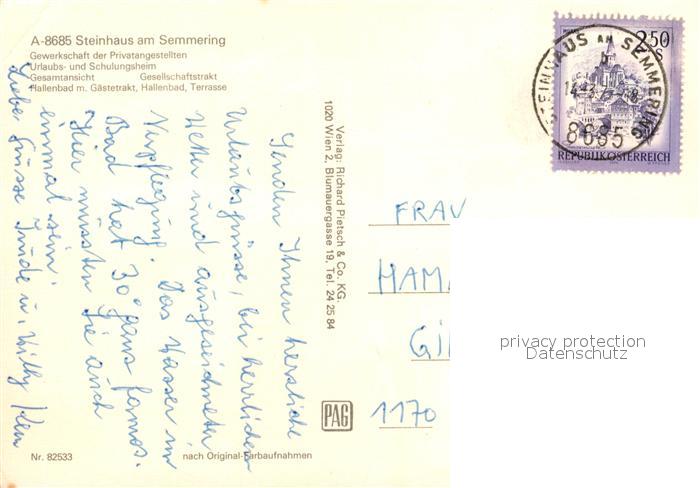 A-8685 Steinhaus am Semmering
Gewerkschaft der Privatangestellten
Urlaubs- und Schulungsheim
Gesamtansicht Gesellschaftstrakt
Hallenbad m. Gästetrakt, Hallenbad, Terrasse
Senden Ihnen herzliche
Urlaubsgrüsse, bei herrlichem
Wetter und ausgezeichneter
Verpflegung. Das Wasser im
Bad hat 30° ganz famos.
Hier müssten Sie auch
einmal sein.
Liebe Grüsse Trude u. Willy
Nr. 82533
nach Original-Farbaufnahmen
Verlag: Richard Pietsch & Co. KG.
1020 Wien 2, Blumauergasse 19, Tel. 24 25 84
PAG
2.50
S
STEINHAUS AM SEMMERING
8685
REPUBLIK ÖSTERREICH
FRAU
HAM
GI
1170
privacy protection
Datenschutz